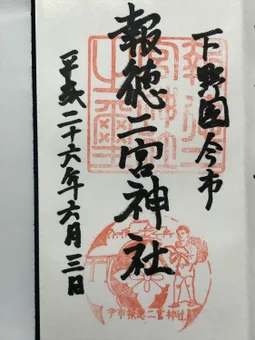 下野国今市
報徳二宮神社
平成二十六年六月三日
今市報徳二宮神社